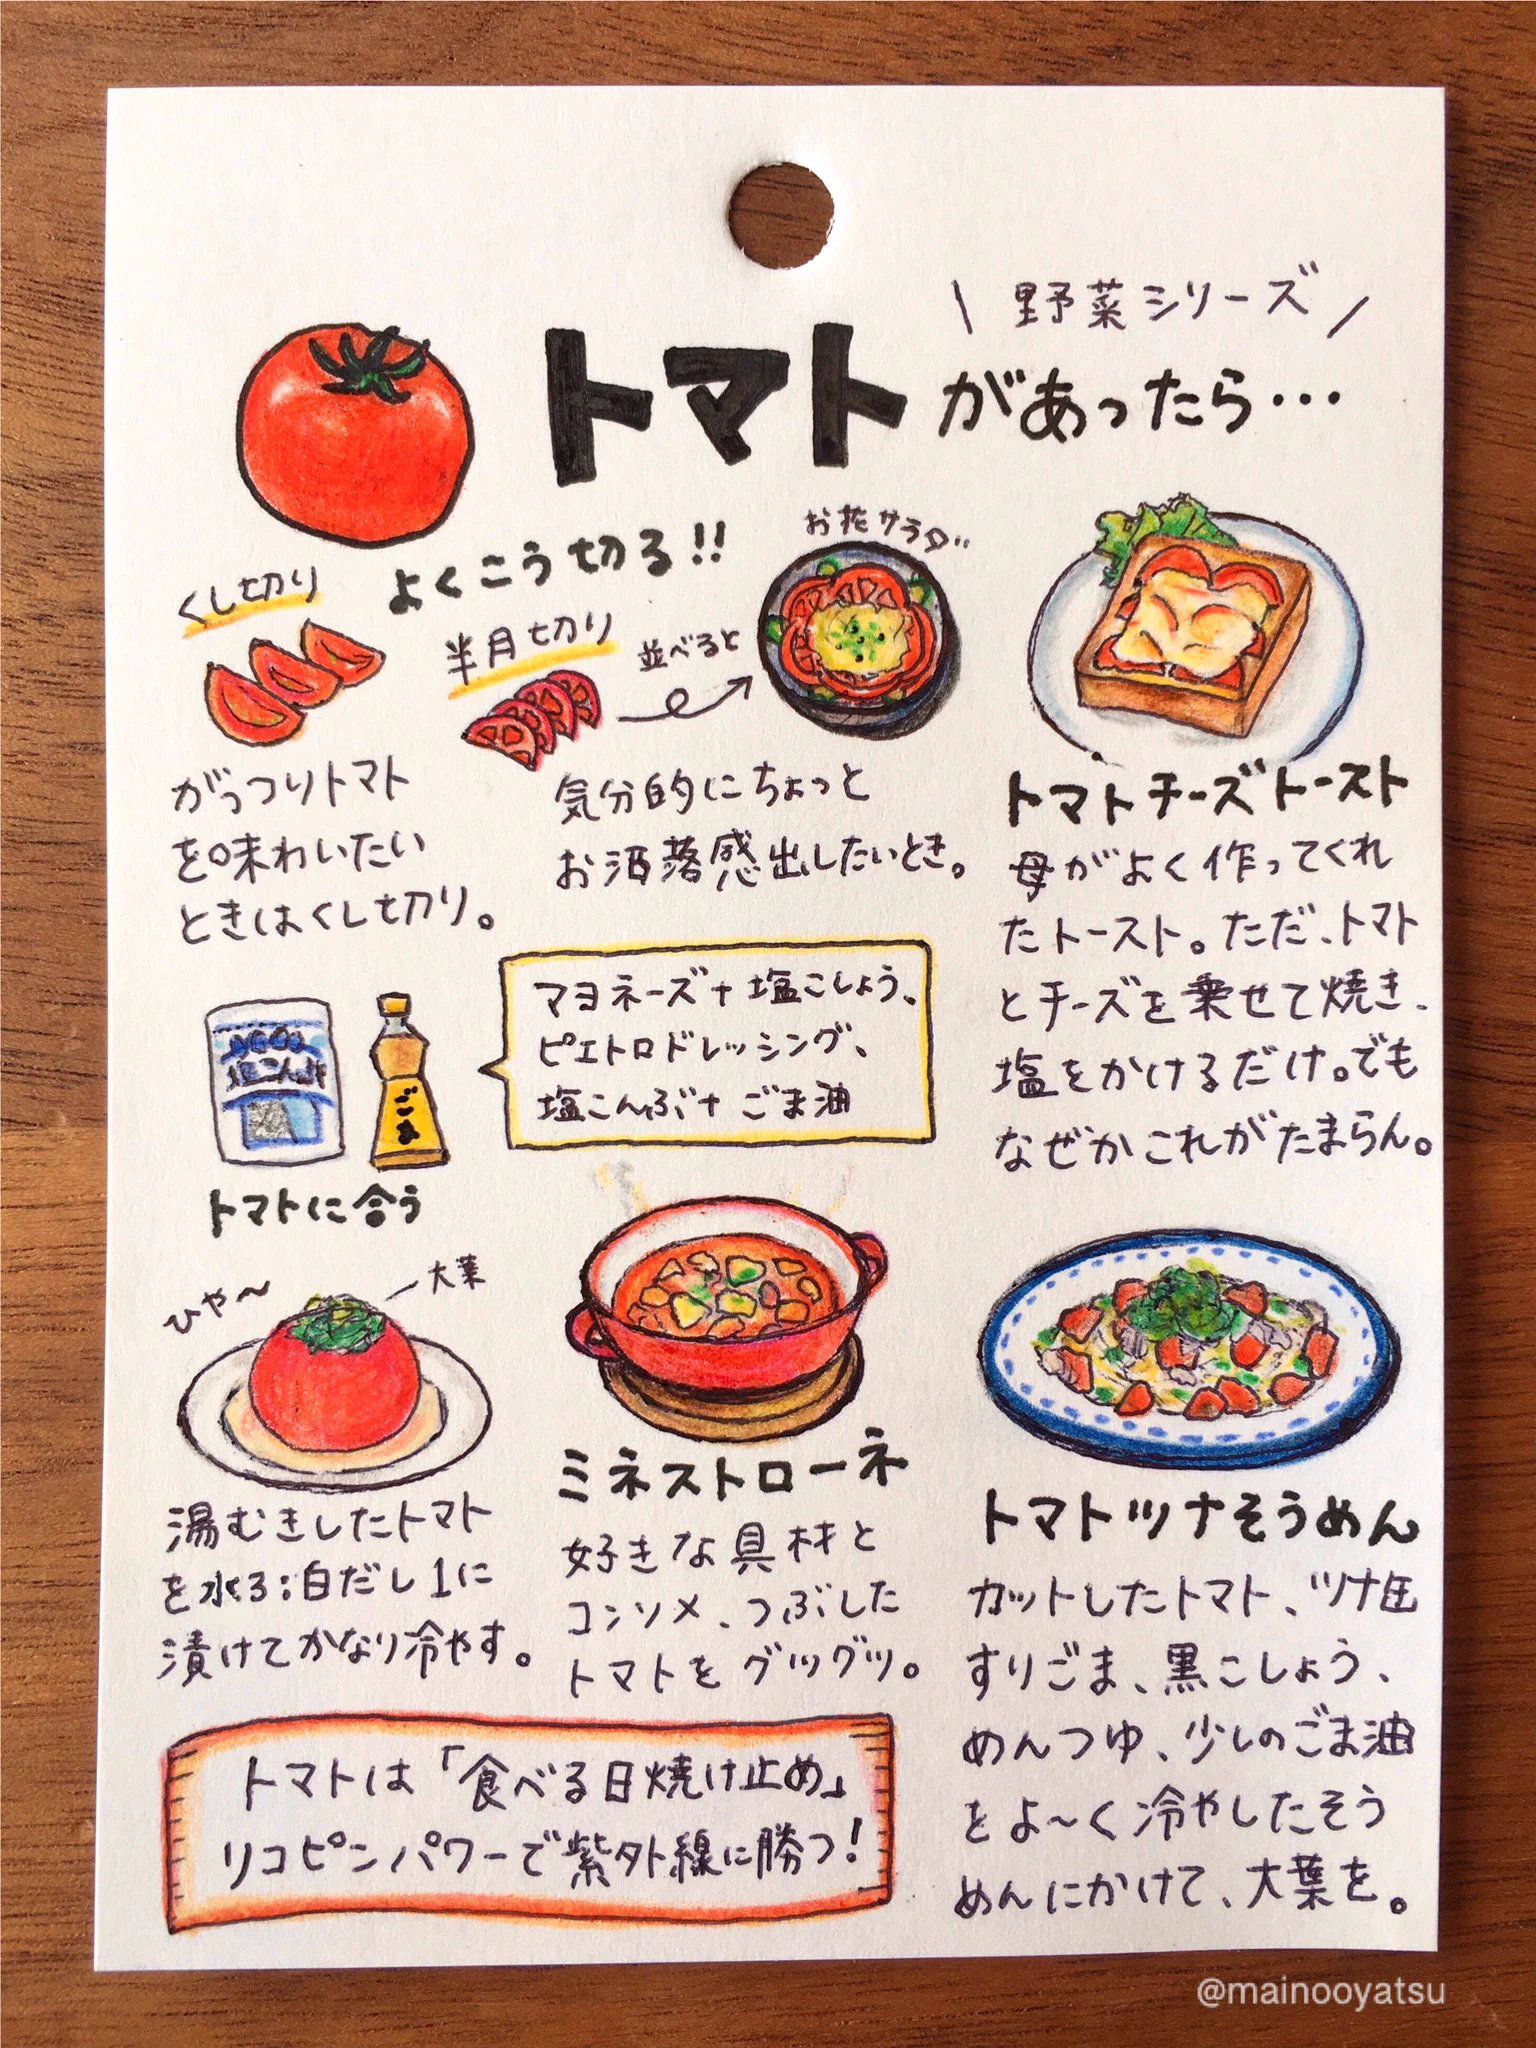 \ 野菜シリーズ /
トマトがあったら…
よくこう切る!!
くし切り
がっつりトマト
を味わいたい
ときはくし切り。
半月切り
並べると
お花サラダ
気分的にちょっと
お洒落感出したいとき。
トマトチーズトースト
母がよく作ってくれ
たトースト。ただ、トマト
とチーズを乗せて焼き、
塩をかけるだけ。でも
なぜかこれがたまらん。
ごま
トマトに合う
マヨネーズ+塩こしょう、
ピエトロドレッシング、
塩こんぶ+ごま油
ひや〜
大葉
湯むきしたトマト
を水3:白だし1に
漬けてかなり冷やす。
ミネストローネ
好きな具材と
コンソメ、つぶした
トマトをグツグツ。
トマトツナそうめん
カットしたトマト、ツナ缶
すりごま、黒こしょう、
めんつゆ、少しのごま油
をよ〜く冷やしたそう
めんにかけて、大葉を。
トマトは「食べる日焼け止め」
リコピンパワーで紫外線に勝つ!
@mainooyatsu